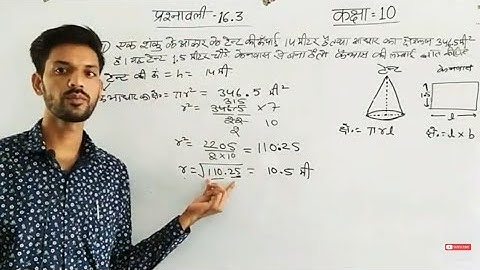 प्रश्नावली-16.3
कक्षा=10
एक शंकु के आकार के टेन्ट की ऊँचाई 14 मीटर है तथा आधार का क्षेत्रफल 346.5 मी²
है। यह टेन्ट 1.5 मीटर चौड़े केनवास से बना है तो केनवास की लम्बाई ज्ञात कीजिये
टेन्ट की ऊँ = h = 14 मी
आधार का क्षे० = πr² = 346.5 मी²
315
r² = 346.5 × 7
22 10
2
r² = 2205 = 110.25
2×10
r = √110.25 = 10.5 मी
टेन्ट
केनवास
l
b
l
क्षे० = πrl
क्षे० = l × b
SUBSCRIBE